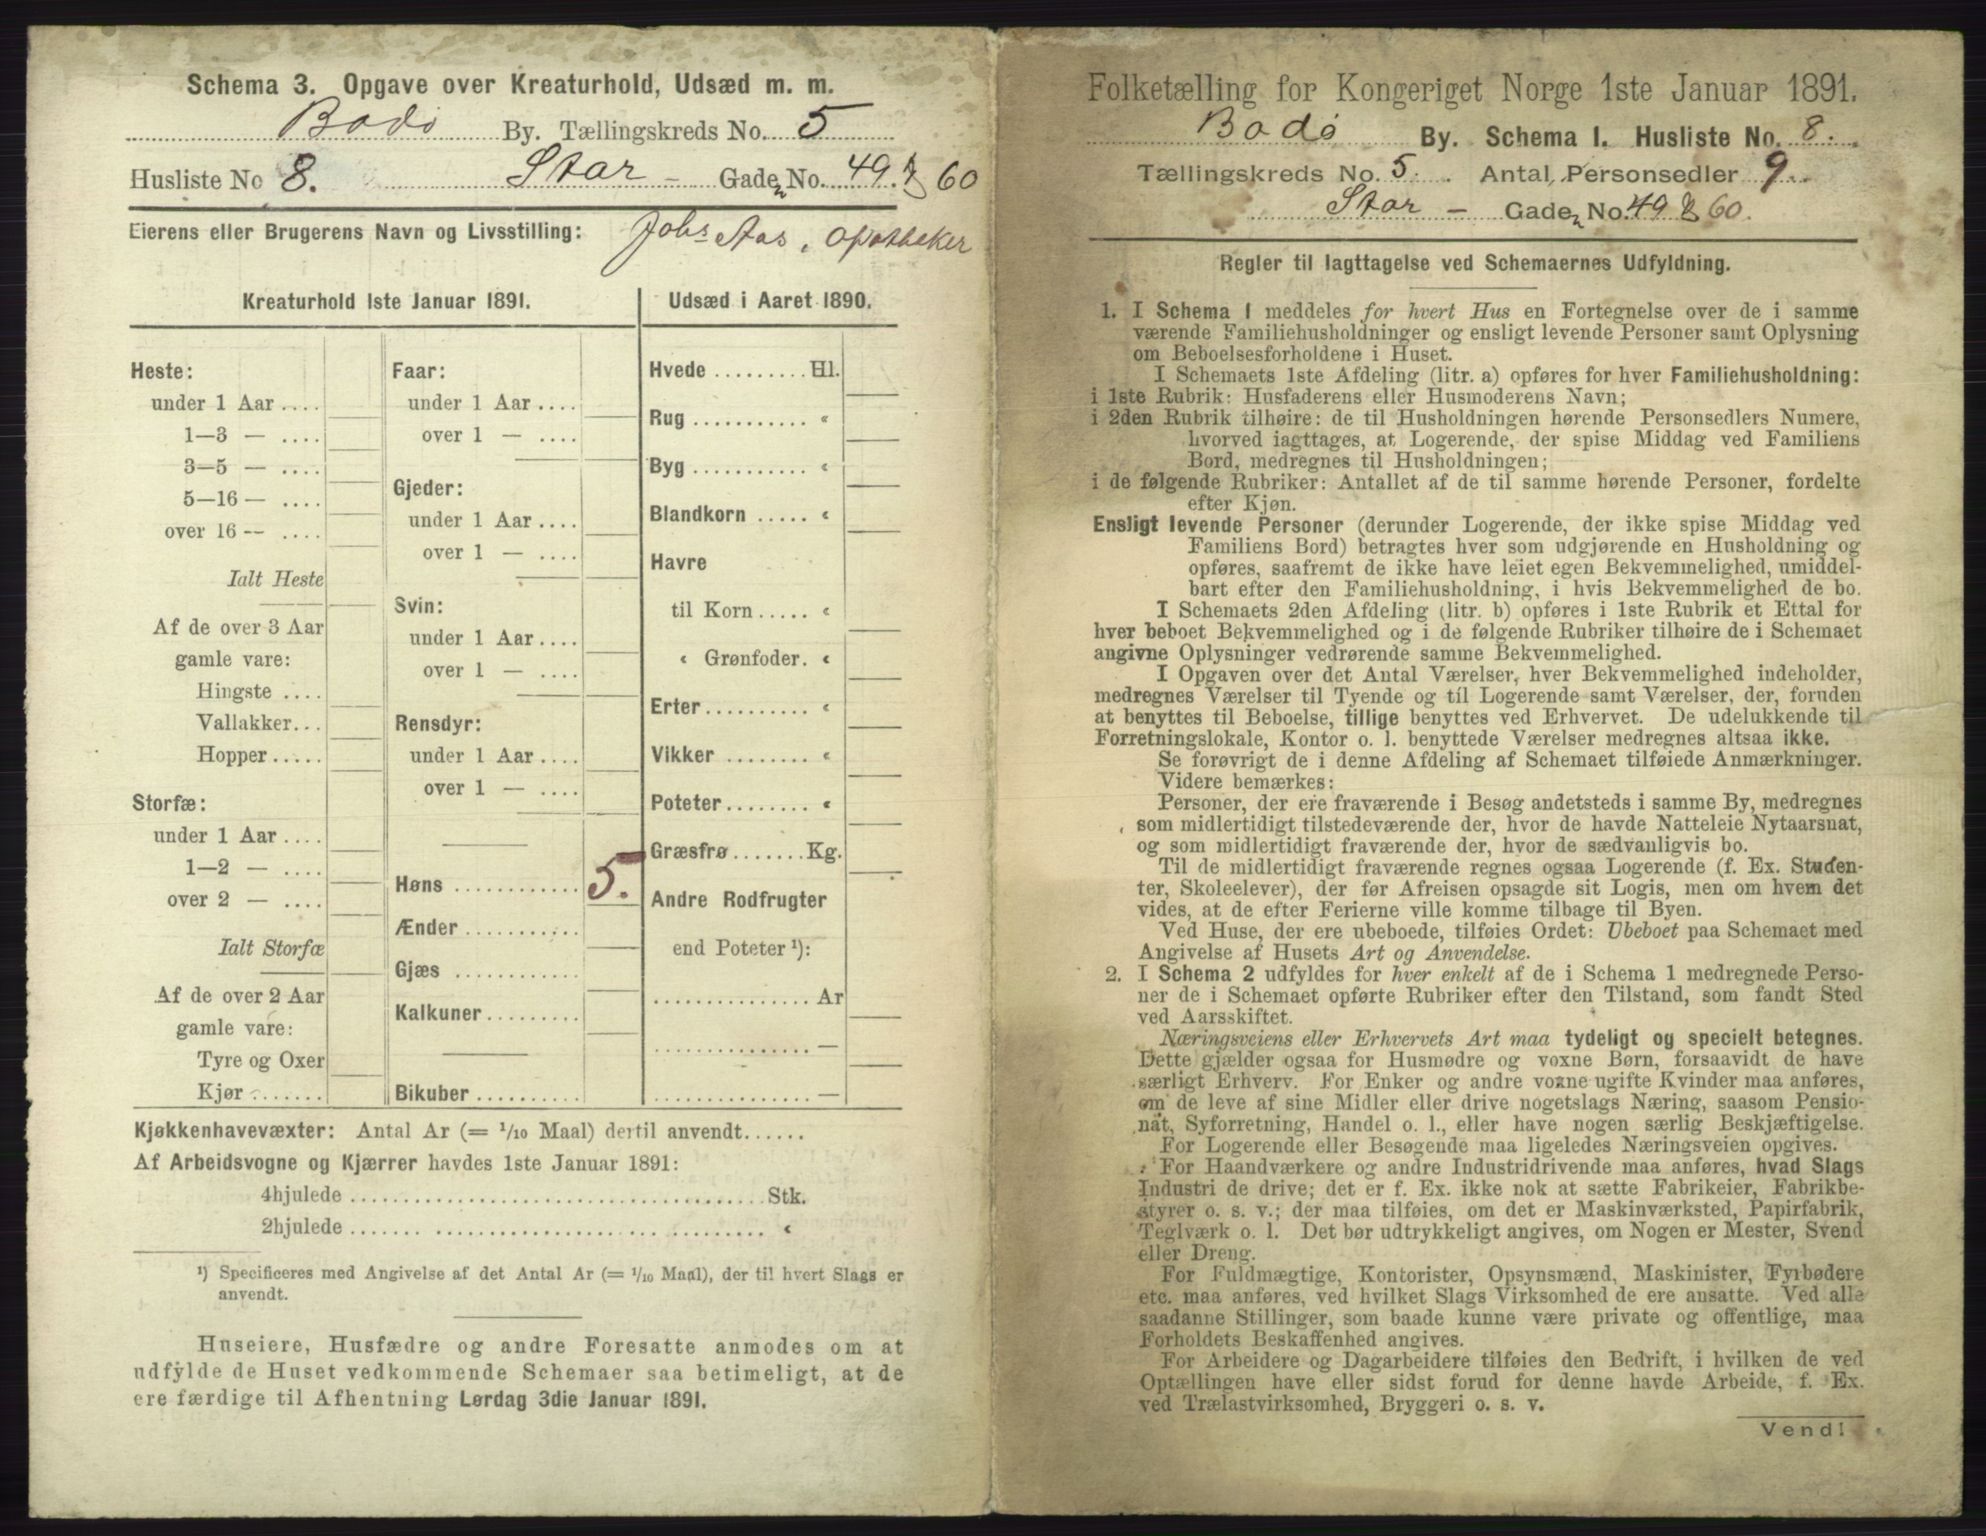 Schema 3. Opgave over Kreaturhold, Udsæd m. m.
Bodø By. Tællingskreds No. 5
Husliste No 8. Star - Gaden No. 49 & 60
Eierens eller Brugerens Navn og Livsstilling: Johs Aas, apotheker
Kreaturhold 1ste Januar 1891.
Heste:
under 1 Aar ....
1—3 — ....
3—5 — ....
5—16 — ....
over 16 -- ....
Ialt Heste
Af de over 3 Aar
gamle vare:
Hingste ....
Vallakker...
Hopper.....
Storfæ:
under 1 Aar ....
1—2 — ....
over 2 — ....
Ialt Storfæ
Af de over 2 Aar
gamle vare:
Tyre og Oxer
Kjør .......
Faar:
under 1 Aar ....
over 1 — ....
Gjeder:
under 1 Aar ....
over 1 — ....
Svin:
under 1 Aar ....
over 1 — ....
Rensdyr:
under 1 Aar ....
over 1 — ....
Høns ............ 5.
Ænder ...........
Gjæs ............
Kalkuner.........
Bikuber ..........
Udsæd i Aaret 1890.
Hvede .........Hl.
Rug ........... «
Byg ........... «
Blandkorn ..... «
Havre
til Korn ..... «
« Grønfoder. «
Erter.......... «
Vikker ........ «
Poteter........ «
Græsfrø.......Kg.
Andre Rodfrugter
end Poteter ¹):
...............Ar
...............—
...............—
Kjøkkenhavevæxter: Antal Ar (= 1/10 Maal) dertil anvendt......
Af Arbeidsvogne og Kjærrer havdes 1ste Januar 1891:
4hjulede ........................................Stk.
2hjulede ........................................ «
¹) Specificeres med Angivelse af det Antal Ar (= 1/10 Maal), der til hvert Slags er
anvendt.
Huseiere, Husfædre og andre Foresatte anmodes om at
udfylde de Huset vedkommende Schemaer saa betimeligt, at de
ere færdige til Afhentning Lørdag 3die Januar 1891.
Folketælling for Kongeriget Norge 1ste Januar 1891.
Bodø By. Schema I. Husliste No. 8.
Tællingskreds No. 5. Antal Personsedler 9.
Star - Gaden No. 49 & 60.
Regler til Iagttagelse ved Schemaernes Udfyldning.
1. I Schema I meddeles for hvert Hus en Fortegnelse over de i samme
værende Familiehusholdninger og ensligt levende Personer samt Oplysning
om Beboelsesforholdene i Huset.
I Schemaets 1ste Afdeling (litr. a) opføres for hver Familiehusholdning:
i 1ste Rubrik: Husfaderens eller Husmoderens Navn;
i 2den Rubrik tilhøire: de til Husholdningen hørende Personsedlers Numere,
hvorved iagttages, at Logerende, der spise Middag ved Familiens
Bord, medregnes til Husholdningen;
i de følgende Rubriker: Antallet af de til samme hørende Personer, fordelte
efter Kjøn.
Ensligt levende Personer (derunder Logerende, der ikke spise Middag ved
Familiens Bord) betragtes hver som udgjørende en Husholdning og
opføres, saafremt de ikke have leiet egen Bekvemmelighed, umiddel-
bart efter den Familiehusholdning, i hvis Bekvemmelighed de bo.
I Schemaets 2den Afdeling (litr. b) opføres i 1ste Rubrik et Ettal for
hver beboet Bekvemmelighed og i de følgende Rubriker tilhøire de i Schemaet
angivne Oplysninger vedrørende samme Bekvemmelighed.
I Opgaven over det Antal Værelser, hver Bekvemmelighed indeholder,
medregnes Værelser til Tyende og til Logerende samt Værelser, der, foruden
at benyttes til Beboelse, tillige benyttes ved Erhvervet. De udelukkende til
Forretningslokale, Kontor o. l. benyttede Værelser medregnes altsaa ikke.
Se forøvrigt de i denne Afdeling af Schemaet tilføiede Anmærkninger.
Videre bemærkes:
Personer, der ere fraværende i Besøg andetsteds i samme By, medregnes
som midlertidigt tilstedeværende der, hvor de havde Natteleie Nytaarsnat,
og som midlertidigt fraværende der, hvor de sædvanligvis bo.
Til de midlertidigt fraværende regnes ogsaa Logerende (f. Ex. Studen-
ter, Skoleelever), der før Afreisen opsagde sit Logis, men om hvem det
vides, at de efter Ferierne ville komme tilbage til Byen.
Ved Huse, der ere ubeboede, tilføies Ordet: Ubeboet paa Schemaet med
Angivelse af Husets Art og Anvendelse.
2. I Schema 2 udfyldes for hver enkelt af de i Schema 1 medregnede Perso-
ner de i Schemaet opførte Rubriker efter den Tilstand, som fandt Sted
ved Aarsskiftet.
Næringsveiens eller Erhvervets Art maa tydeligt og specielt betegnes.
Dette gjælder ogsaa for Husmødre og voxne Børn, forsaavidt de have
særligt Erhverv. For Enker og andre voxne ugifte Kvinder maa anføres,
om de leve af sine Midler eller drive nogetslags Næring, saasom Pensio-
nat, Syforretning, Handel o. l., eller have nogen særlig Beskjæftigelse.
For Logerende eller Besøgende maa ligeledes Næringsveien opgives.
For Haandværkere og andre Industridrivende maa anføres, hvad Slags
Industri de drive; det er f. Ex. ikke nok at sætte Fabrikeier, Fabrikbe-
styrer o. s. v.; der maa tilføies, om det er Maskinværksted, Papirfabrik,
Teglværk o. l. Det bør udtrykkeligt angives, om Nogen er Mester, Svend
eller Dreng.
For Fuldmægtige, Kontorister, Opsynsmænd, Maskinister, Fyrbødere
etc. maa anføres, ved hvilket Slags Virksomhed de ere ansatte. Ved alle
saadanne Stillinger, som baade kunne være private og offentlige, maa
Forholdets Beskaffenhed angives.
For Arbeidere og Dagarbeidere tilføies den Bedrift, i hvilken de ved
Optællingen have eller sidst forud for denne havde Arbeide, f. Ex.
ved Trælastvirksomhed, Bryggeri o. s. v.
Vend!